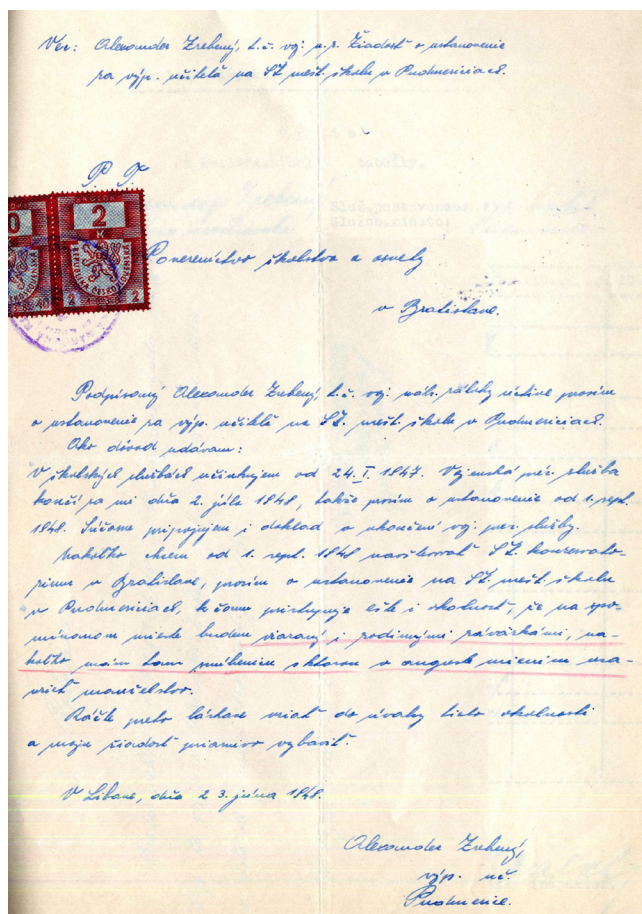 Vec: Alexander Zrebený, t.č. voj. v.p. Žiadosť o ustanovenie
za výp. učiteľa na Št. mešt. školu v Pudmericiach.
P. T.
Povereníctvo školstva a osvety
v Bratislave.
2
K
2
2
40
REPUBLIKA ČESKOSLOVENSKÁ
Podpísaný Alexander Zrebený, t.č. voj. zálohy úctive prosím
o ustanovenie za výp. učiteľa na Št. mešt. školu v Pudmericiach.
Ako dôvod udávam:
V školských službách účinkujem od 24. I. 1947. Vojenská prez. služba
končí sa mi dňa 2. júla 1948, takže prosím o ustanovenie od 1. sept.
1948. Súčasne pripojujem i doklad o ukončení voj. prez. služby.
Nakoľko chcem od 1. sept. 1948 navštevovať Št. konzervató-
rium v Bratislave, prosím o ustanovenie na Št. mešt. školu
v Pudmericiach, k čomu pristupuje ešte i okolnosť, že na spo-
mínanom mieste budem viazaný i rodinnými záväzkami, na-
koľko mám tam snúbenicu s ktorou v auguste mienim uza-
vrieť manželstvo.
Ráčte preto láskave vziať do úvahy tieto okolnosti
a moju žiadosť priaznivo vybaviť.
V Libave, dňa 23. júna 1948.
Alexander Zrebený,
výp. uč.
Pudmerice.